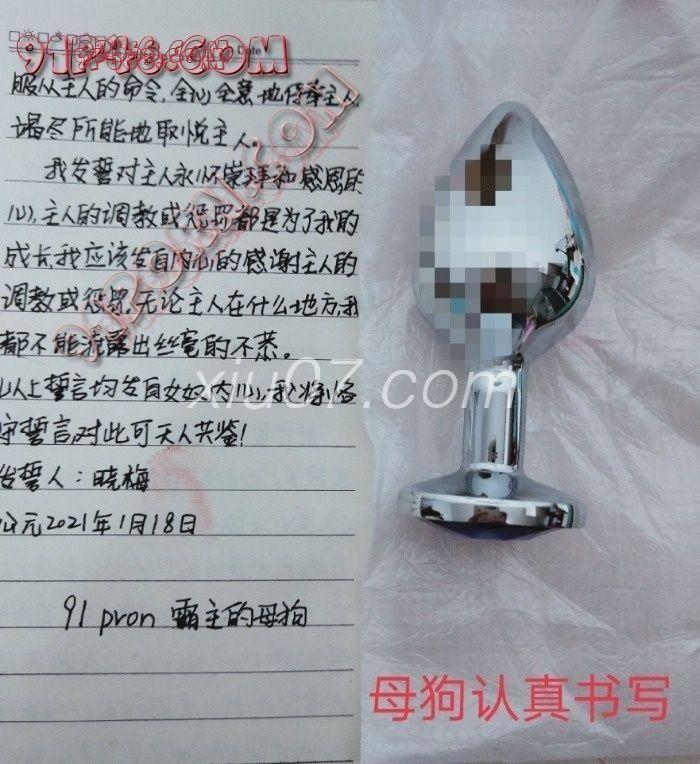 91P46.COM
Date
服从主人的命令,全心全意地侍奉主人,
竭尽所能地取悦主人。
我发誓对主人永怀崇拜和感恩的
心,主人的调教或惩罚都是为了我的
成长,我应该发自内心的感谢主人的
调教或惩罚,无论主人在什么地方,我
都不能流露出丝毫的不恭。
以上誓言均发自女奴内心,我将恪
守誓言对此可天人共鉴!
发誓人:晓梅
公元2021年1月18日
91 pron 霸主的母狗
xiu07.com
母狗认真书写